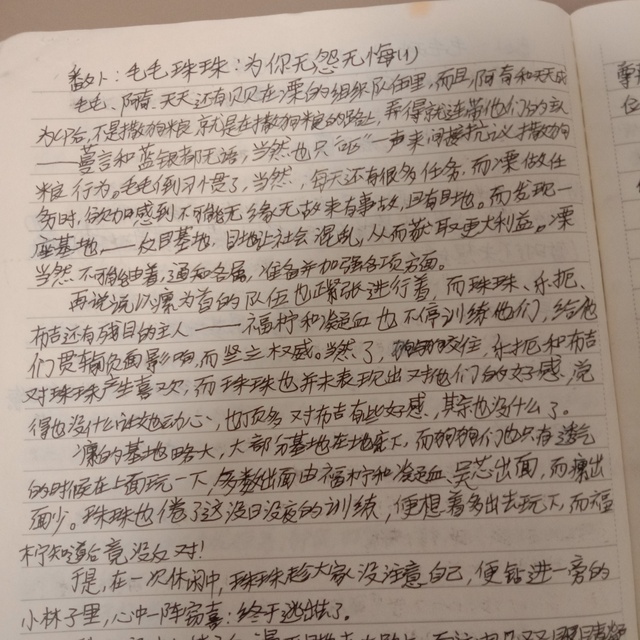 番外：毛毛珠珠：为你无怨无悔(1)
毛毛、阿奇、天天还有贝贝在溧的组织队伍里，而且，阿奇和天天成
为CP后，不是撒狗粮，就是在撒狗粮的路上，弄得就连带他们的主
——蔓言和蓝银都无语，当然也只“呃”一声来间接抗议撒狗
粮行为。毛毛倒习惯了，当然，每天还有很多任务，而溧做任
务时，感到不可能无缘无故来有事故，且有目地。而发现一
座基地，——反目基地，目地让社会混乱，从而获取更大利益。溧
当然不可能由着，通知各属，准备并加强各项方面。
再说说以凛为首的队伍也正紧张进行着，而珠珠、乐扼、
布吉还有残目的主人——福柠和凝血也不停训练他们，给他
们贯输负面影响，而坚立权威。当然了，住，乐扼和布吉
对珠珠产生喜欢，而珠珠也并未表现出对他们的好感，觉
得也没什么让她动心，也顶多对布吉有些好感，其余也没什么了。
凛的基地略大，大部分基地在地底下，而狗狗们也只有透气
的时候在上面玩一下，多数出面由福柠和凝血、吴芯出面，而凛出
面少。珠珠也倦了这没日没夜的训练，便想着多出去玩下，而福
柠知道后竟没反对！
于是，在一次休闲中，珠珠趁大家没注意自己，便钻进一旁的
小林子里，心中一阵窃喜：终于逃出去了。